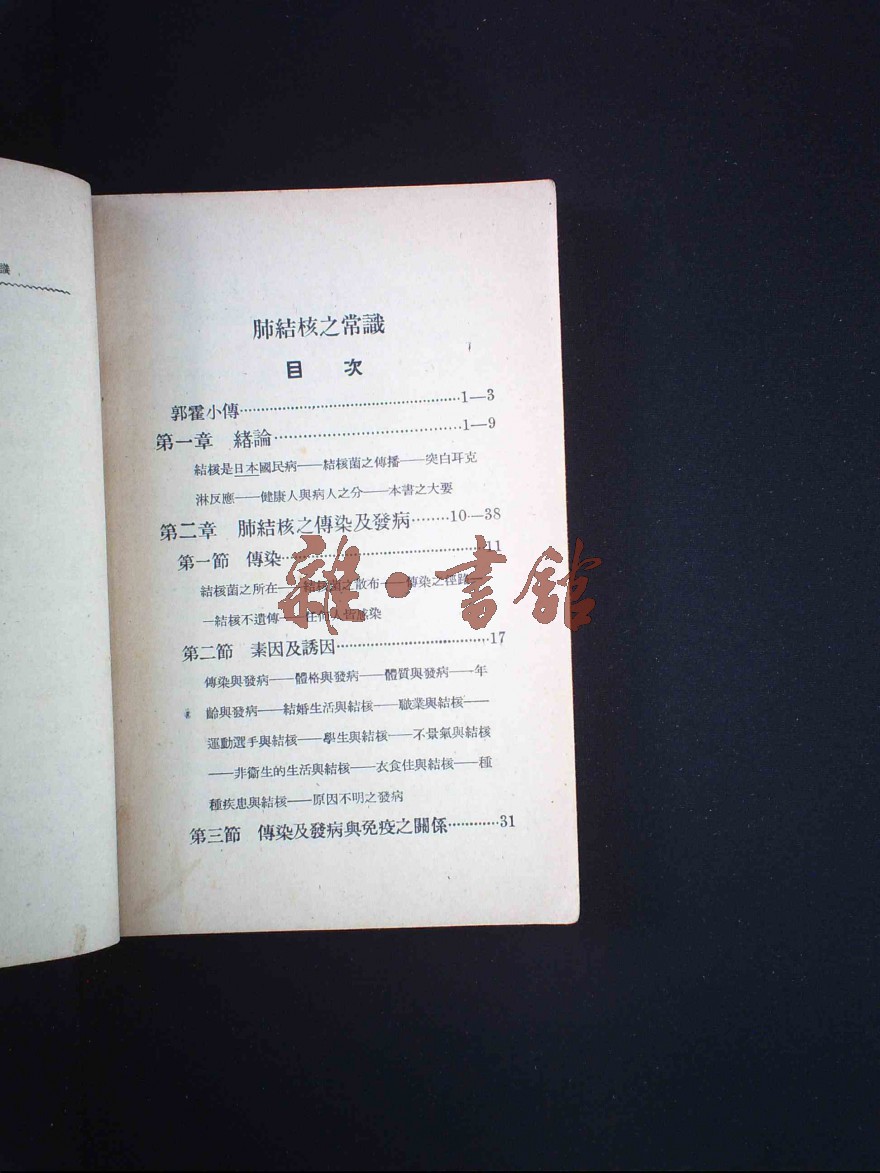 識
肺結核之常識
目 次
郭霍小傳……1—3
第一章 緒論……1—9
結核是日本國民病——結核菌之傳播——突白耳克
淋反應——健康人與病人之分——本書之大要
第二章 肺結核之傳染及發病……10—38
第一節 傳染……11
結核菌之所在——結核菌之散布——傳染之徑路—
—結核不遺傳——任何人皆感染
第二節 素因及誘因……17
傳染與發病——體格與發病——體質與發病——年
齡與發病——結婚生活與結核——職業與結核——
運動選手與結核——學生與結核——不景氣與結核
——非衛生的生活與結核——衣食住與結核——種
種疾患與結核——原因不明之發病
第三節 傳染及發病與免疫之關係……31
雜·書館